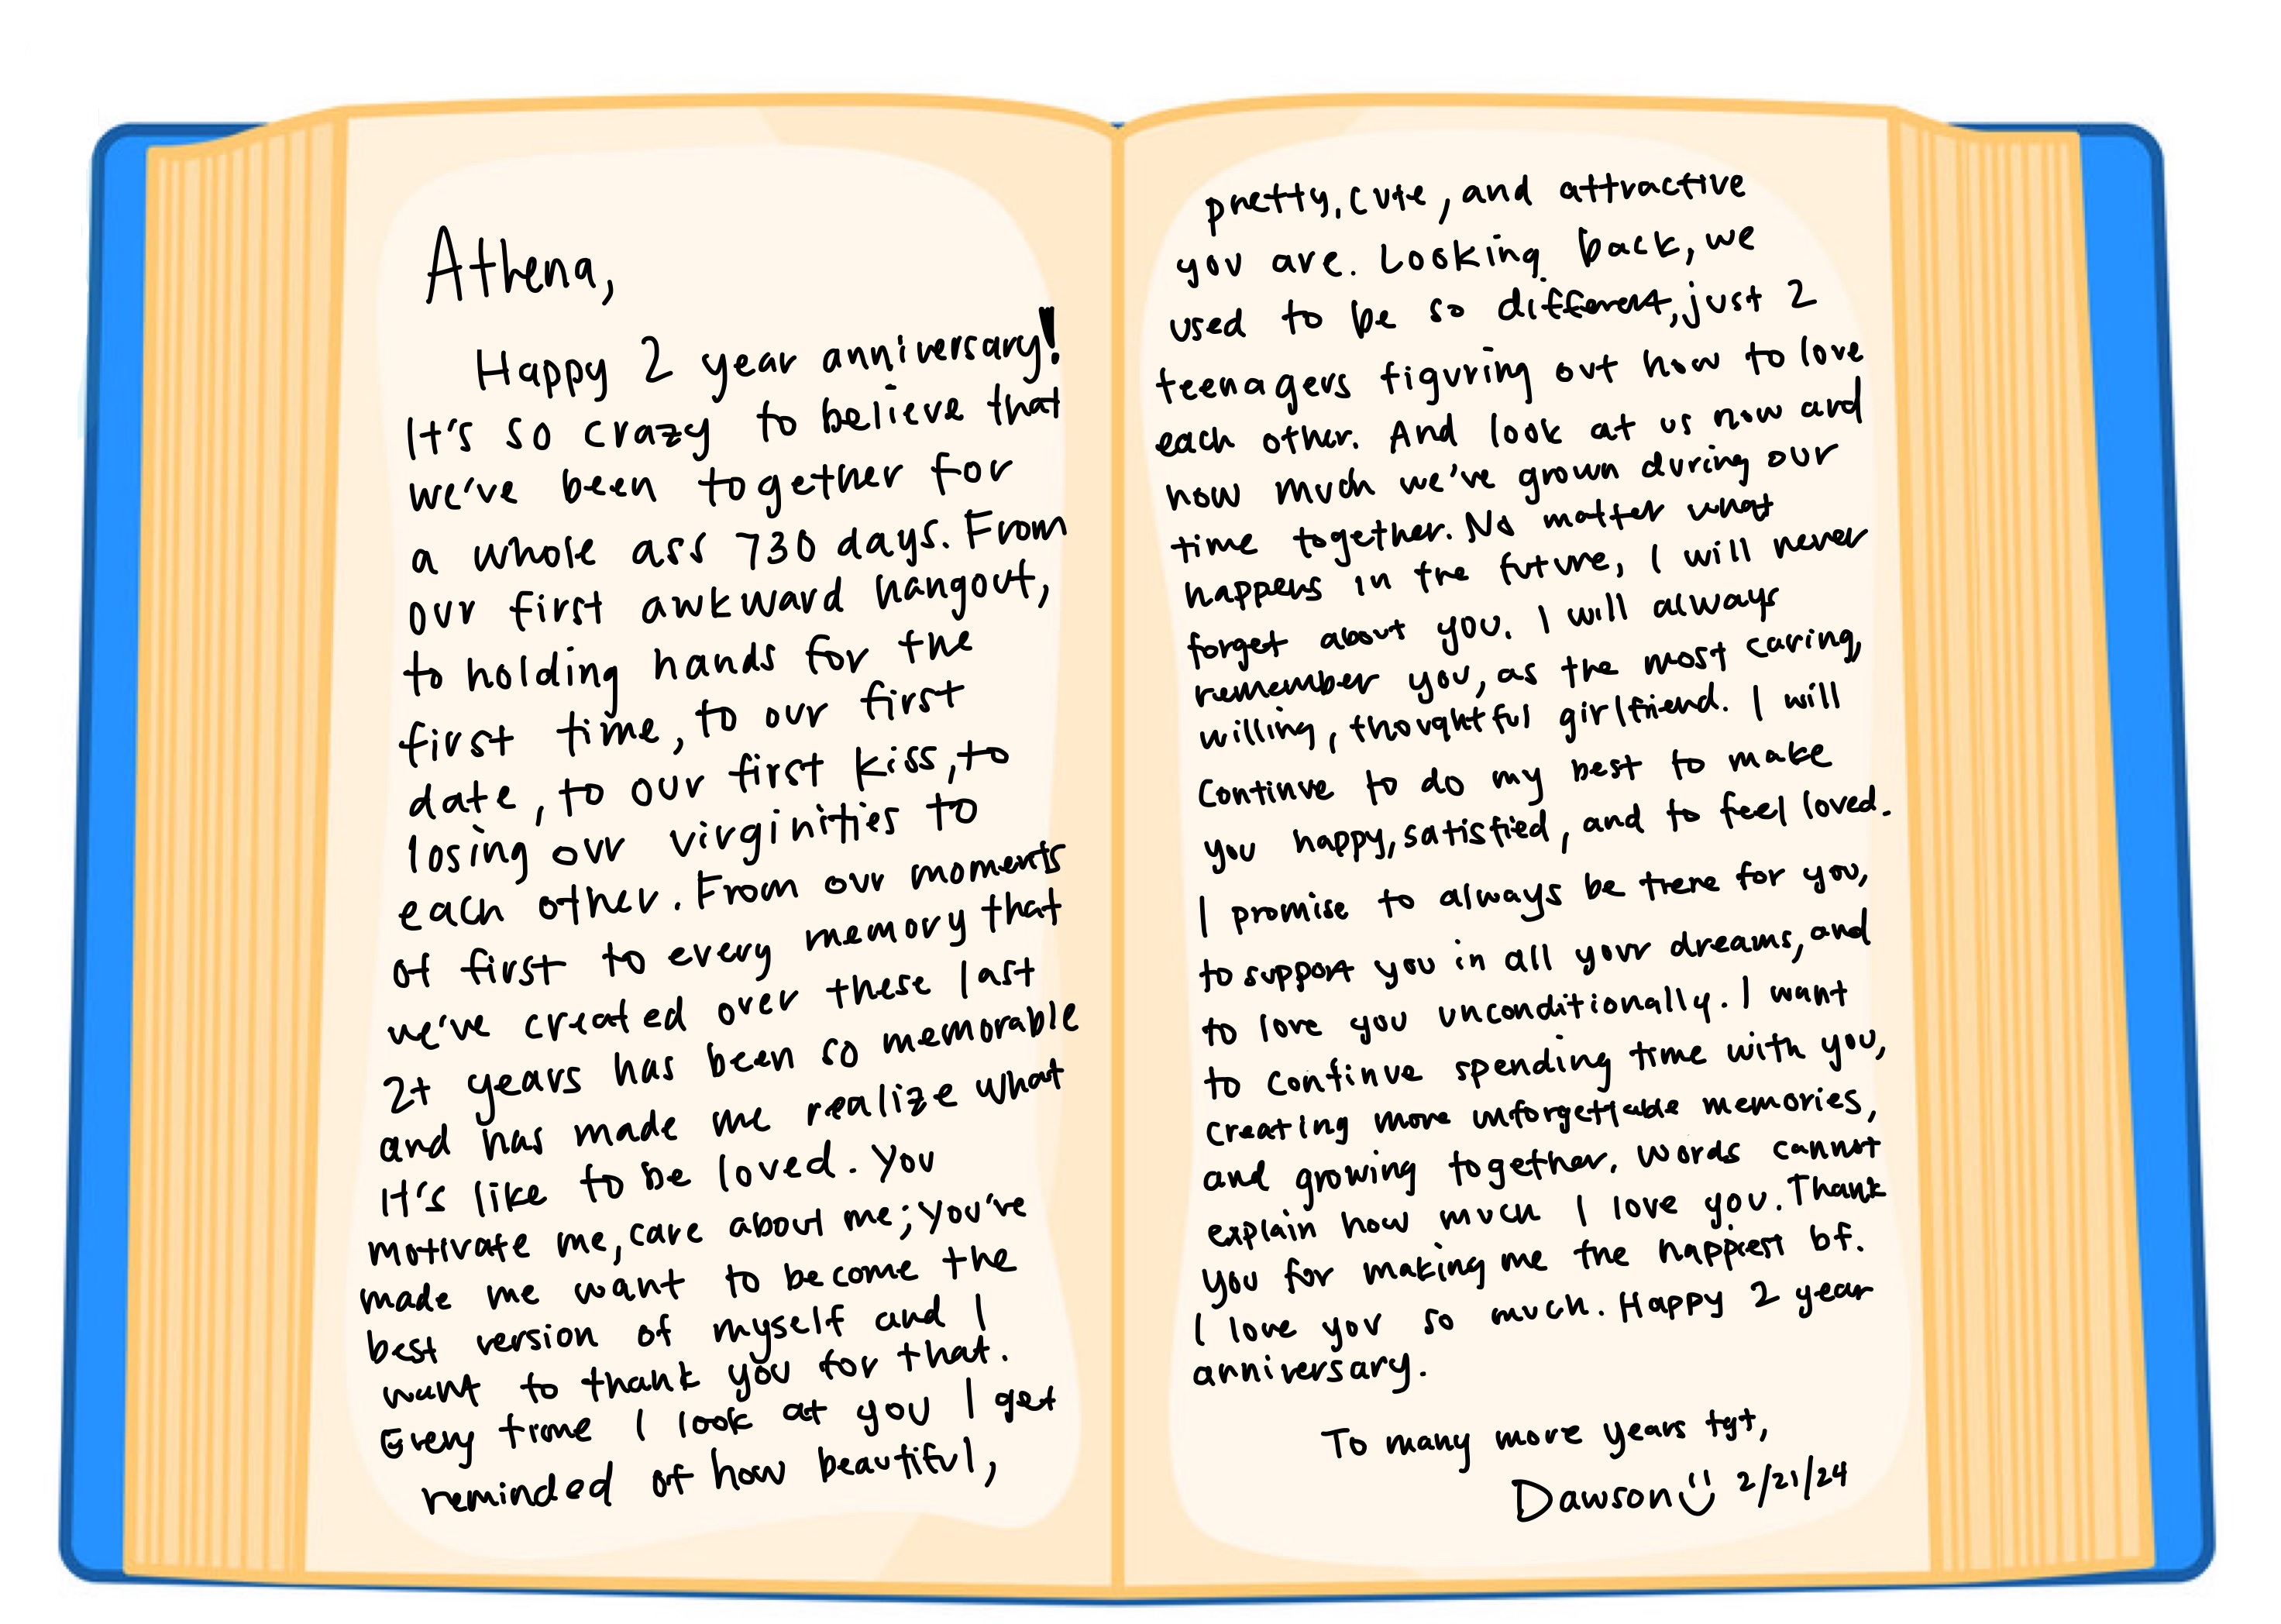 Athena,
Happy 2 year anniversary!
It's so crazy to believe that
we've been together for
a whole ass 730 days. From
our first awkward hangout,
to holding hands for the
first time, to our first
date, to our first kiss, to
losing our virginities to
each other. From our moments
of first to every memory that
we've created over these last
2+ years has been so memorable
and has made me realize what
it's like to be loved. You
motivate me, care about me; you've
made me want to become the
best version of myself and I
want to thank you for that.
Every time I look at you I get
reminded of how beautiful,
pretty, cute, and attractive
you are. Looking back, we
used to be so different, just 2
teenagers figuring out how to love
each other. And look at us now and
how much we've grown during our
time together. No matter what
happens in the future, I will never
forget about you. I will always
remember you, as the most caring,
willing, thoughtful girlfriend. I will
continue to do my best to make
you happy, satisfied, and to feel loved.
I promise to always be there for you,
to support you in all your dreams, and
to love you unconditionally. I want
to continue spending time with you,
creating more unforgettable memories,
and growing together. Words cannot
explain how much I love you. Thank
you for making me the happiest bf.
I love you so much. Happy 2 year
anniversary.
To many more years tgt,
Dawson 2/21/24